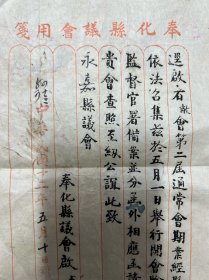 奉化縣議會用箋
逕啟者敝會第二屆通常會期業經
依法召集茲於五月一日舉行開會除
監督官署備案並分函外相應函請
貴會查照至紉公誼此致
永嘉縣議會
奉化縣議會啟
五 十